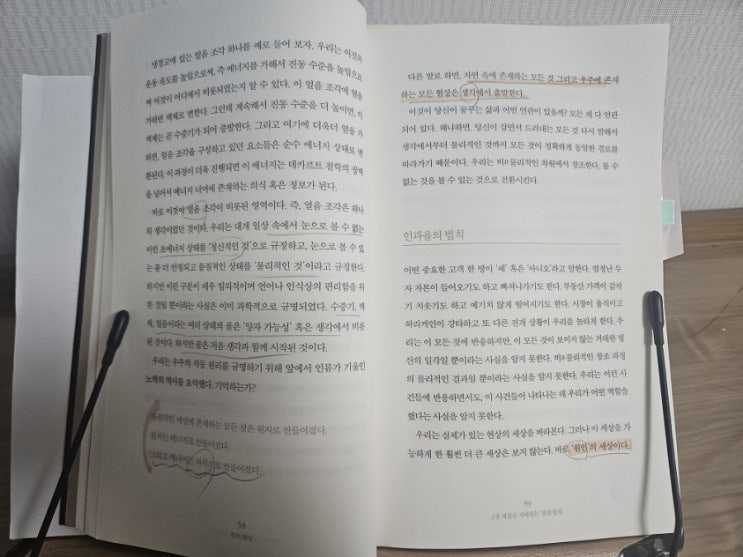 냉장고에 있는 얼음 조각 하나를 예로 들어 보자. 우리는 이것의
운동 속도를 높임으로써, 즉 에너지를 가해서 진동 수준을 높임으로
써 이것이 어디에서 비롯되었는지 알 수 있다. 이 얼음 조각에 열을
가하면 액체로 변한다. 그런데 계속해서 진동 수준을 더 높이면, 이
액체는 곧 수증기가 되어 증발한다. 그리고 여기에 더욱더 열을 가
하면, 얼음 조각을 구성하고 있던 요소들은 순수 에너지 상태로 변
환된다. 이 과정이 더욱 진행되면 이 에너지는 데카르트 철학의 장벽
을 넘어서 에너지 너머에 존재하는 의식 혹은 정보가 된다.
바로 이것이 얼음 조각이 비롯된 영역이다. 즉, 얼음 조각은 하나
의 생각이었던 것이다. 우리는 대개 일상 속에서 눈으로 볼 수 없는
이런 초에너지 상태를 '정신적인 것'으로 규정하고, 눈으로 볼 수 있
는 좀 더 안정되고 물질적인 상태를 '물리적인 것'이라고 규정한다.
하지만 이런 구분이 매우 임의적이며 언어나 인식상의 편리함을 위
한 것일 뿐이라는 사실은 이미 과학적으로 규명되었다. 수증기, 액
체, 얼음이라는 여러 상태의 물은 '양자 가능성' 혹은 생각에서 비롯
된 것이다. 하지만 물은 처음 생각과 함께 시작된 것이다.
우리는 우주의 작동 원리를 규명하기 위해 앞에서 인류가 기울인
노력의 역사를 요약했다. 기억하는가?
물리적인 세상에 존재하는 모든 것은 원자로 만들어졌다.
원자는 에너지로 만들어졌다.
그리고 에너지는 의식으로 만들어졌다.
58
부의 해답
다른 말로 하면, 자연 속에 존재하는 모든 것 그리고 우주에 존재
하는 모든 현상은 생각에서 출발한다.
이것이 당신이 꿈꾸는 삶과 어떤 연관이 있을까? 모든 게 다 연관
되어 있다. 왜냐하면, 당신이 살면서 드러내는 모든 것 다시 말해서
생각에서부터 물리적인 것까지 모든 것이 정확하게 동일한 경로를
따라가기 때문이다. 우리는 비非물리적인 차원에서 창조한다. 볼 수
없는 것을 볼 수 있는 것으로 전환시킨다.
인과율의 법칙
어떤 중요한 고객 한 명이 '예' 혹은 '아니오'라고 말한다. 엄청난 투
자 자본이 들어오기도 하고 빠져나가기도 한다. 부동산 가격이 갑자
기 치솟기도 하고 예기치 않게 떨어지기도 한다. 시장이 움직이고
허리케인이 강타하고 또 다른 전개 상황이 우리를 놀라게 한다. 우
리는 이 모든 것에 반응하지만, 이 모든 것이 보이지 않는 거대한 빙
산의 일각일 뿐이라는 사실을 알지 못한다. 비非물리적인 창조 과정
의 물리적인 결과일 뿐이라는 사실을 알지 못한다. 우리는 이런 사
건들에 반응하면서도, 이 사건들이 나타나는 데 우리가 어떤 역할을
했다는 사실을 알지 못한다.
우리는 실체가 있는 현상의 세상을 바라본다. 그러나 이 세상을 가
능하게 한 훨씬 더 큰 세상은 보지 않는다. 바로 '원인'의 세상이다.
59
3장 세상을 지배하는 진화 법칙